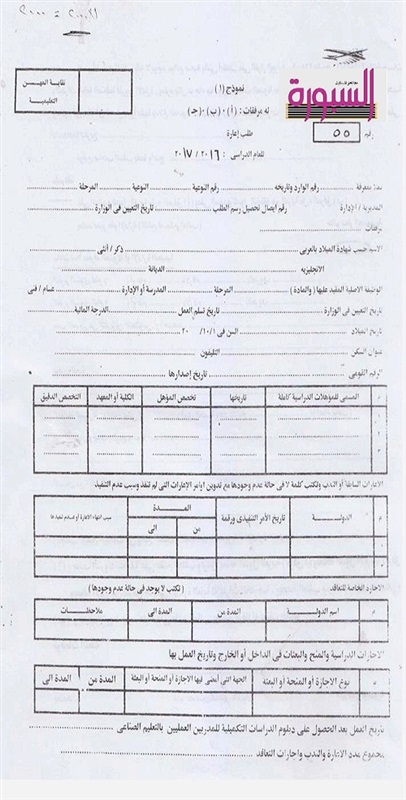 نموذج (١)
السبورة
نقابة المهن
التعليمية
له مرفقات : (أ) ، (ب) ، (جـ)
رقم ٥٥
طلب إعارة
للعام الدراسى : ٢٠١٦ / ٢٠١٧
رقم الوارد وتاريخه ........ رقم النوعية ........ النوعية ........ المرحلة ........
المديرية / الإدارة ........ رقم ايصال تحصيل رسم الطلب ........ تاريخ التعيين فى الوزارة ........
مرفقات
الاسم حسب شهادة الميلاد بالعربى ........ ذكر / أنثى ........
الانجليزيه ........ الديانة ........
الوظيفة الاصلية المقيد عليها (والمادة) ........ المرحلة ........ المدرسة أو الإدارة ........ عسام / فنى
تاريخ التعيين فى الوزارة ........ تاريخ تسلم العمل ........ الدرجة المالية ........
تاريخ الميلاد ........ السن فى ١٠/١/ ٢٠
عنوان السكن ........ التليفون ........
الرقم القومى ........ تاريخ إصدارها ........
م المسمى للمؤهلات الدراسية كاملة تاريخها تخصص المؤهل الكلية أو المعهد التخصص الدقيق
١
٢
٣
الاعارات السابقة أو الندب وتكتب كلمة لا فى حالة عدم وجودها مع تدوين اوامر الإعارات التى لم تنفذ وسبب عدم التنفيذ
م الدولـــة تاريخ الأمر التنفيذى ورقمة المـــدة سبب انتهاء الاعارة او عدم تنفيذها
من الى
الخاصة للتعاقد ( تكتب لا يوجد فى حالة عدم وجودها )
م اسم الدولـــة المدة من المدة الى ملاحظات
الاجازات الدراسية والمنح والبعثات فى الداخل أو الخارج وتاريخ العمل بها
م نوع الاجازة أو المنحة أو البعثة الجهة التى أمضى فيها الاجازة أو المنحة أو البعثة المدة من المدة الى
تاريخ العمل بعد الحصول على دبلوم الدراسات التكميلية للمدربين العمليين بالتعليم الصناعى ........
مجموع مدد الاعارة والندب واجازات التعاقد ........